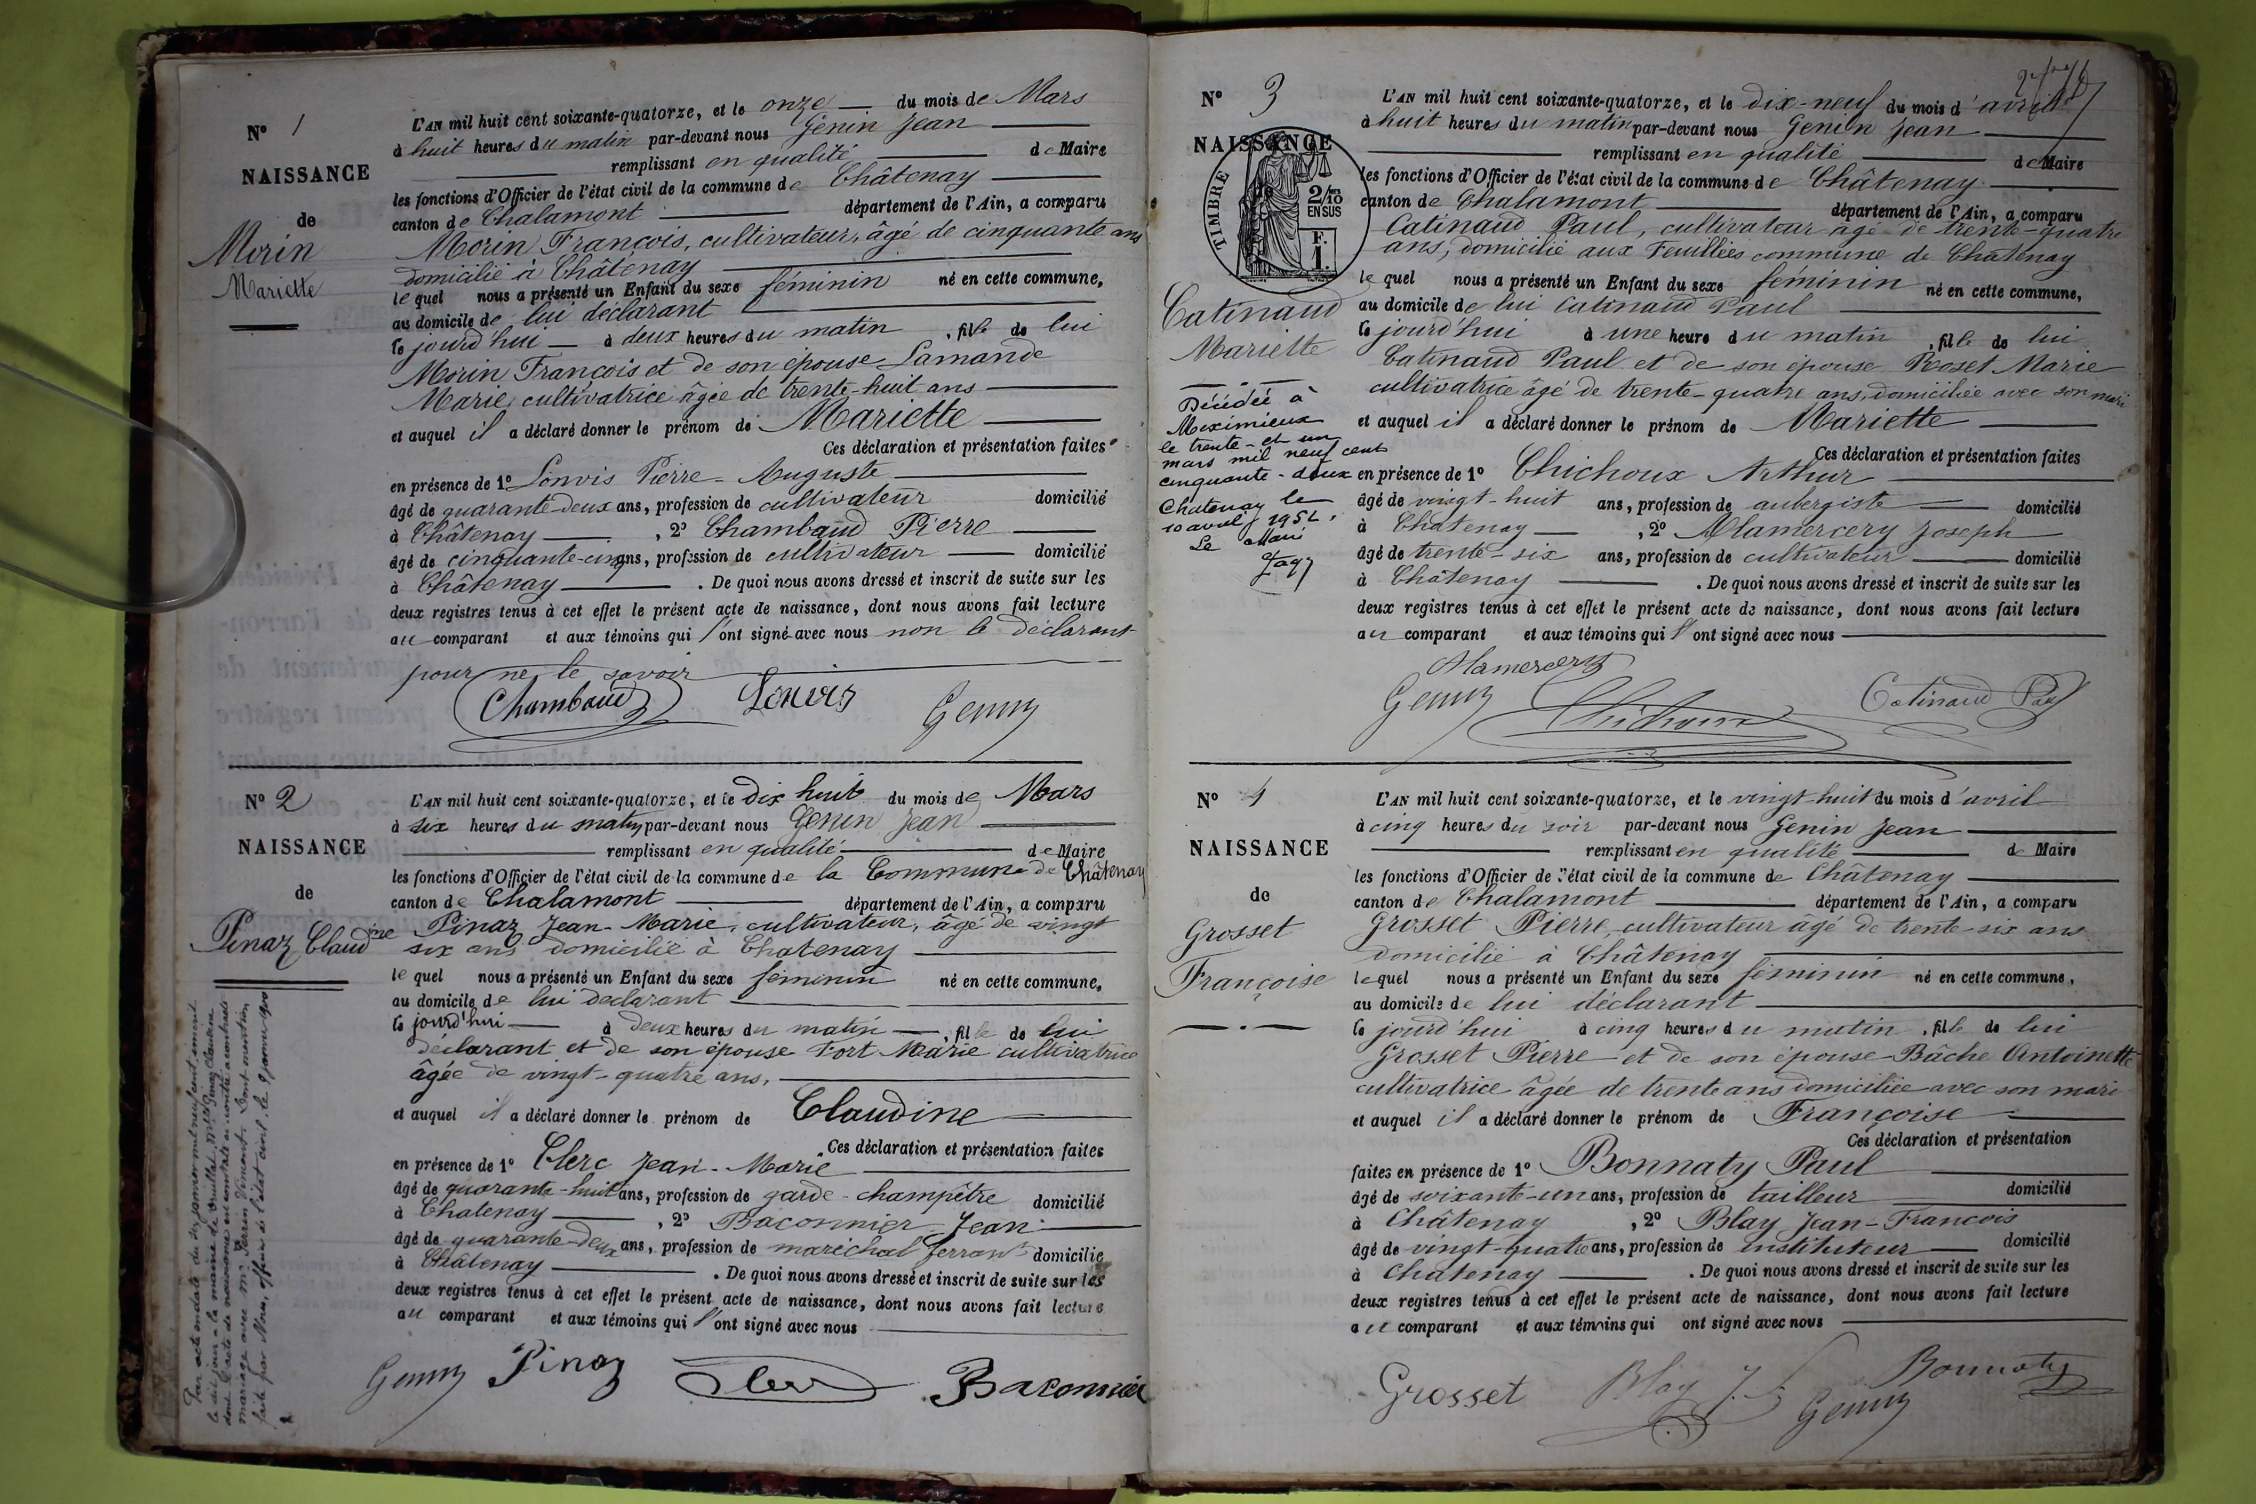 N° 1
NAISSANCE
de
Morin
Mariette
L'AN mil huit cent soixante-quatorze, et le onze du mois de Mars
à huit heures du matin par-devant nous Genin Jean
remplissant en qualité de Maire
les fonctions d'Officier de l'état civil de la commune de Châtenay
canton de Chalamont département de l'Ain, a comparu
Morin François, cultivateur, âgé de cinquante ans
domicilié à Châtenay
lequel nous a présenté un Enfant du sexe féminin né en cette commune,
au domicile de lui déclarant
le jourd'hui à deux heures du matin, fille de lui
Morin François et de son épouse Lamande
Marie, cultivatrice âgée de trente-huit ans
et auquel il a déclaré donner le prénom de Mariette
Ces déclaration et présentation faites
en présence de 1° Lonvis Pierre-Auguste
âgé de quarante-deux ans, profession de cultivateur domicilié
à Châtenay, 2° Chambaud Pierre
âgé de cinquante-cinq ans, profession de cultivateur domicilié
à Châtenay. De quoi nous avons dressé et inscrit de suite sur les
deux registres tenus à cet effet le présent acte de naissance, dont nous avons fait lecture
au comparant et aux témoins qui l'ont signé avec nous non le déclarant
pour ne le savoir
Chambaud Lonvis Genin
N° 2
NAISSANCE
de
Pinaz Claudine
L'AN mil huit cent soixante-quatorze, et le dix huit du mois de Mars
à six heures du matin par-devant nous Genin Jean
remplissant en qualité de Maire
les fonctions d'Officier de l'état civil de la commune de la Commune de Châtenay
canton de Chalamont département de l'Ain, a comparu
Pinaz Jean-Marie, cultivateur, âgé de vingt
six ans domicilié à Chatenay
lequel nous a présenté un Enfant du sexe féminin né en cette commune,
au domicile de lui déclarant
le jourd'hui à deux heures du matin, fille de lui
déclarant et de son épouse Fort Marie cultivatrice
âgée de vingt-quatre ans,
et auquel il a déclaré donner le prénom de Claudine
Ces déclaration et présentation faites
en présence de 1° Clerc Jean-Marie
âgé de quarante-huit ans, profession de garde-champêtre domicilié
à Chatenay, 2° Baconnier Jean
âgé de quarante-deux ans, profession de maréchal ferrant domicilié
à Châtenay. De quoi nous avons dressé et inscrit de suite sur les
deux registres tenus à cet effet le présent acte de naissance, dont nous avons fait lecture
au comparant et aux témoins qui l'ont signé avec nous
Genin Pinaz Clerc Baconnier
Par acte en date du six janvier mil neuf cent inscrit
le dit jour à la mairie de Melle Pinaz Claudine
dont l'acte de naissance est contracté
mariage avec Mr Perrin Vincent. Dont mention
faite par Nous, officier de l'état civil, le 9 janvier 1900
N° 3
NAISSANCE
de
TIMBRE
2/10
EN SUS
F.
1.
Catinaud
Mariette
Décédée à
Meximieux
le trente-et un
mars mil neuf cent
cinquante-deux
Chatenay le
10 avril 1952.
Le Maire
L'AN mil huit cent soixante-quatorze, et le dix-neuf du mois d'avril
à huit heures du matin par-devant nous Genin Jean
remplissant en qualité de Maire
les fonctions d'Officier de l'état civil de la commune de Châtenay
canton de Chalamont département de l'Ain, a comparu
Catinaud Paul, cultivateur âgé de trente-quatre
ans, domicilié aux Feuillées commune de Chatenay
lequel nous a présenté un Enfant du sexe féminin né en cette commune,
au domicile de lui Catinaud Paul
le jourd'hui à une heure du matin, fille de lui
Catinaud Paul et de son épouse Roset Marie
cultivatrice âgé de trente-quatre ans, domiciliée avec son mari
et auquel il a déclaré donner le prénom de Mariette
Ces déclaration et présentation faites
en présence de 1° Chichoux Arthur
âgé de vingt-huit ans, profession de aubergiste domicilié
à Chatenay, 2° Alamercery Joseph
âgé de trente-six ans, profession de cultivateur domicilié
à Châtenay. De quoi nous avons dressé et inscrit de suite sur les
deux registres tenus à cet effet le présent acte de naissance, dont nous avons fait lecture
au comparant et aux témoins qui l'ont signé avec nous
Alamercery
Genin Chichoux Catinaud Paul
N° 4
NAISSANCE
de
Grosset
Françoise
L'AN mil huit cent soixante-quatorze, et le vingt-huit du mois d'avril
à cinq heures du soir par-devant nous Genin Jean
remplissant en qualité de Maire
les fonctions d'Officier de l'état civil de la commune de Châtenay
canton de Chalamont département de l'Ain, a comparu
Grosset Pierre, cultivateur âgé de trente-six ans
domicilié à Châtenay
lequel nous a présenté un Enfant du sexe féminin né en cette commune,
au domicile de lui déclarant
le jourd'hui à cinq heures du matin, fille de lui
Grosset Pierre et de son épouse Bâche Antoinette
cultivatrice âgée de trente ans domiciliée avec son mari
et auquel il a déclaré donner le prénom de Françoise
Ces déclaration et présentation
faites en présence de 1° Bonnaty Paul
âgé de soixante-un ans, profession de tailleur domicilié
à Châtenay, 2° Blay Jean-François
âgé de vingt-quatre ans, profession de instituteur domicilié
à Chatenay. De quoi nous avons dressé et inscrit de suite sur les
deux registres tenus à cet effet le présent acte de naissance, dont nous avons fait lecture
au comparant et aux témoins qui ont signé avec nous
Grosset Blay J.F. Genin Bonnaty